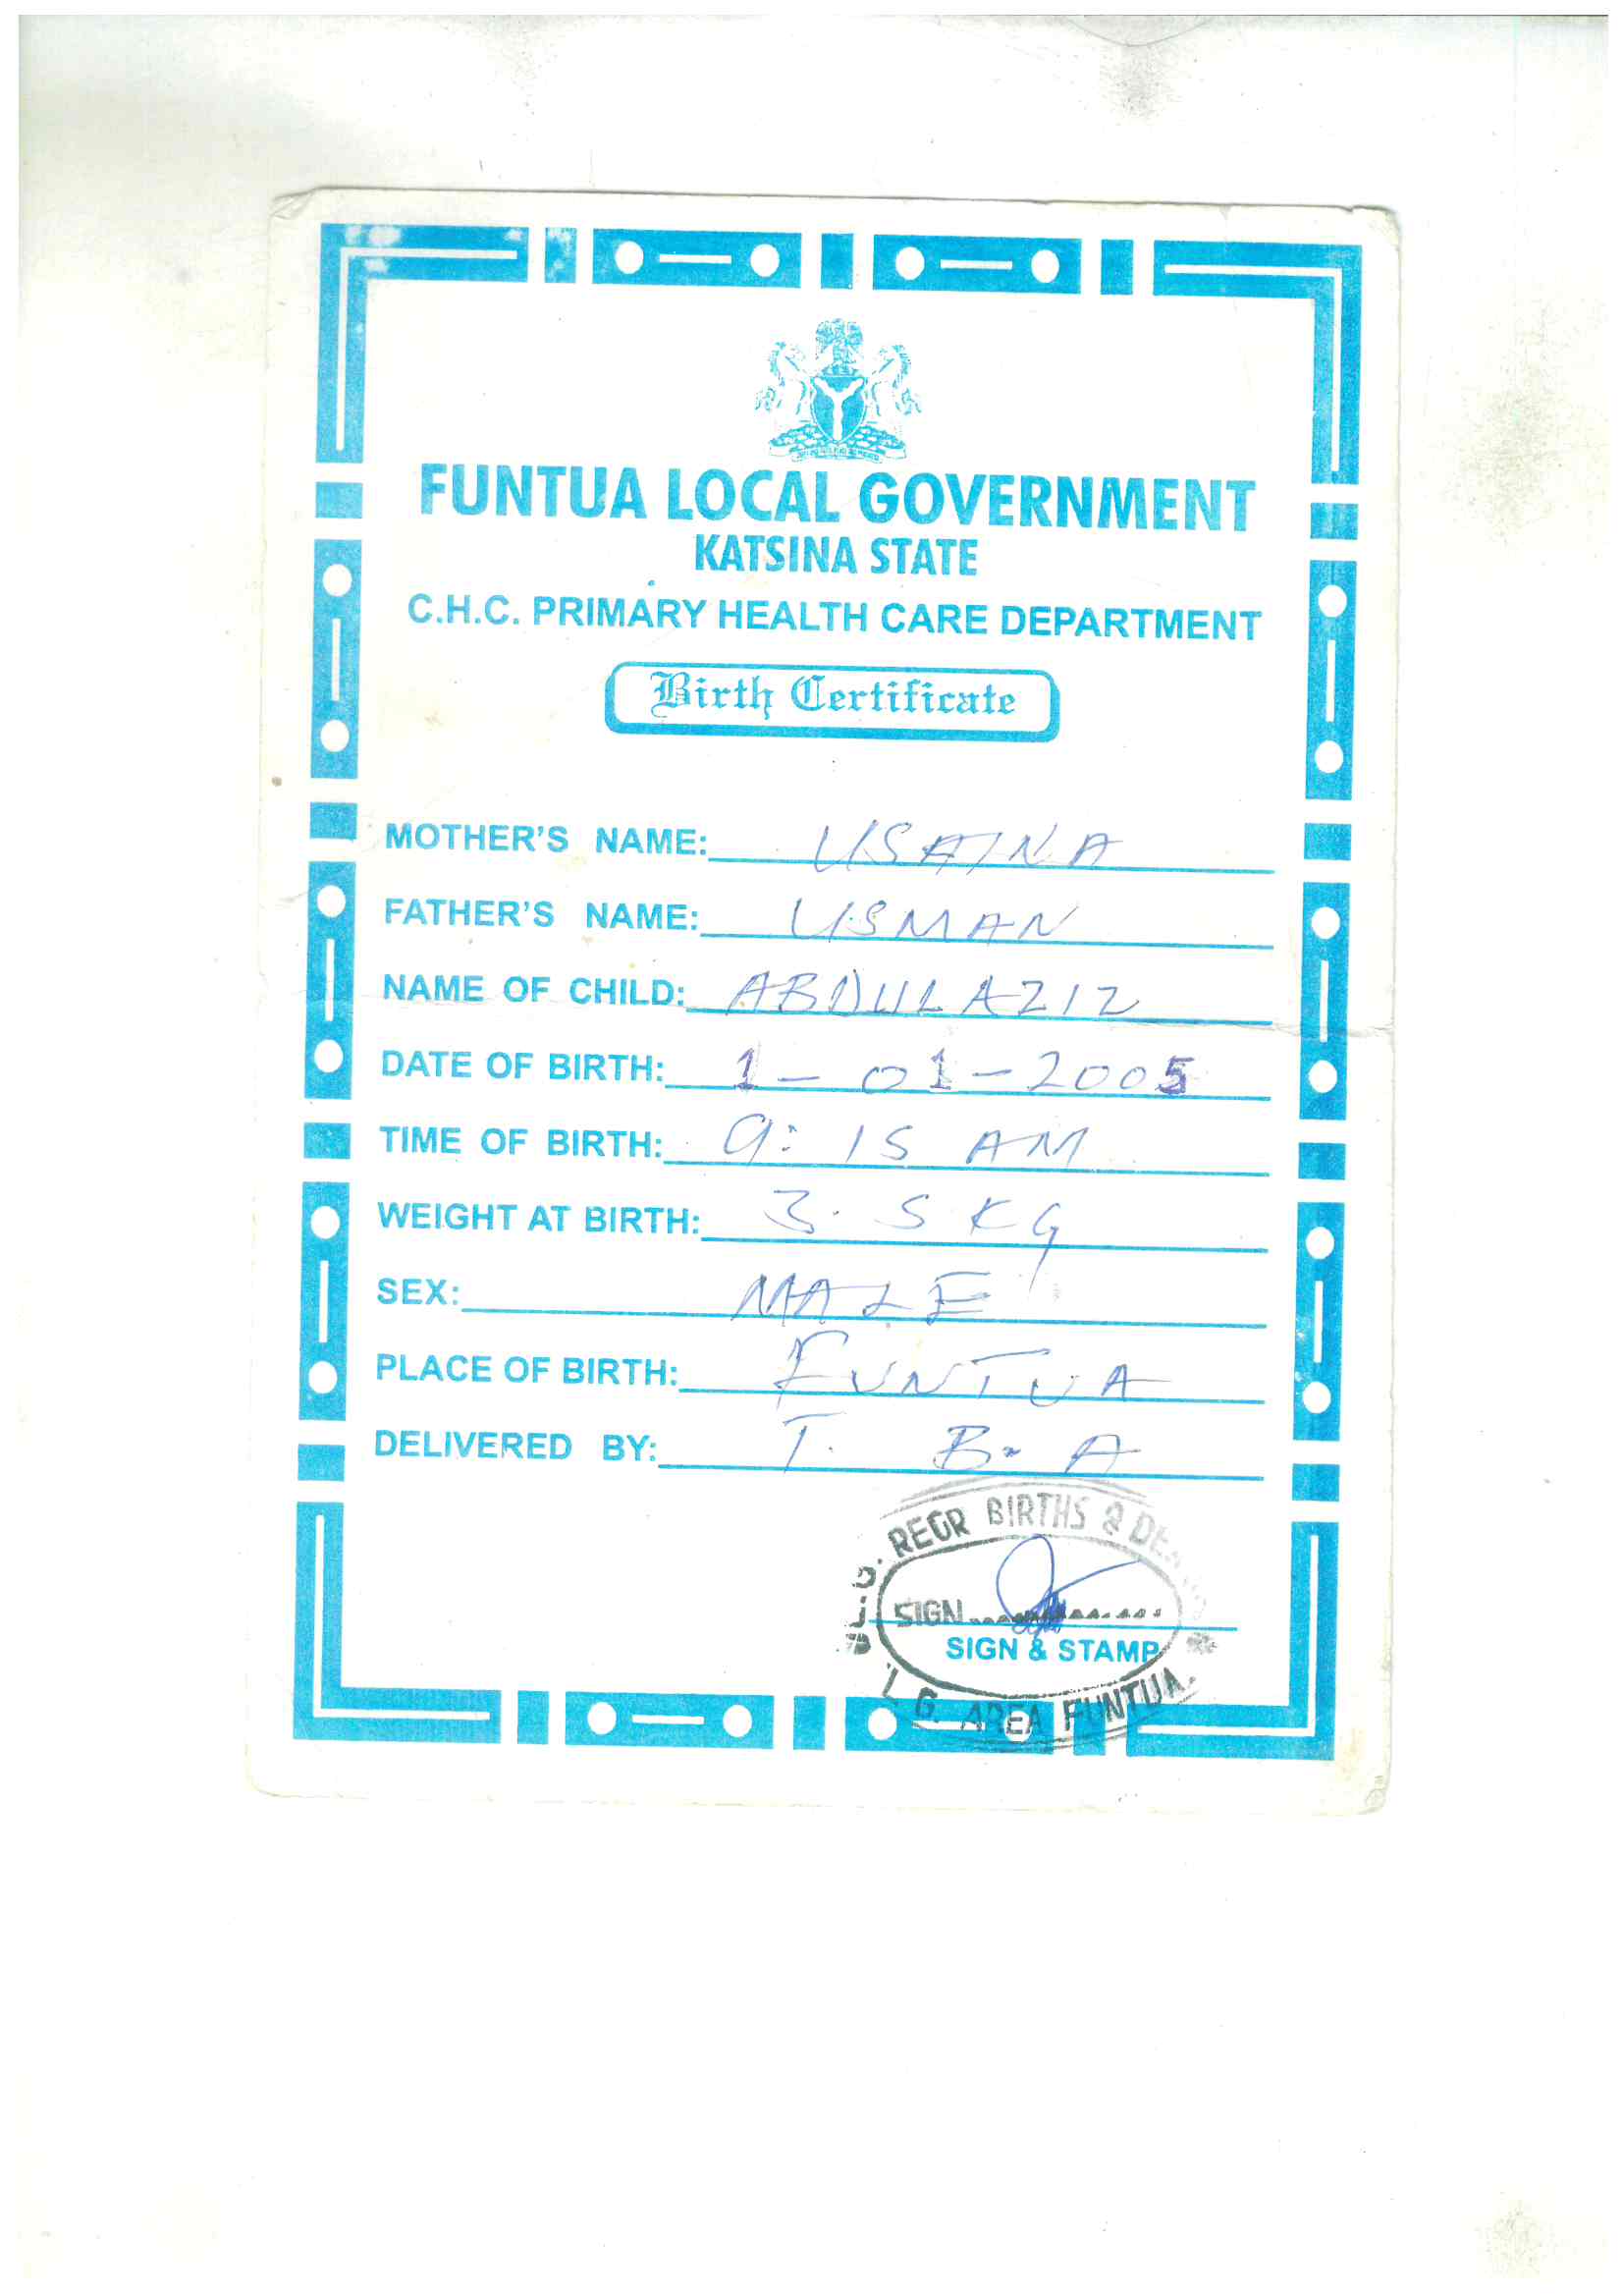 FUNTUA LOCAL GOVERNMENT
KATSINA STATE
C.H.C. PRIMARY HEALTH CARE DEPARTMENT
Birth Certificate
MOTHER'S NAME: USAINA
FATHER'S NAME: USMAN
NAME OF CHILD: ABDULAZIZ
DATE OF BIRTH: 1-01-2005
TIME OF BIRTH: 9:15 AM
WEIGHT AT BIRTH: 3.5 KG
SEX: MALE
PLACE OF BIRTH: FUNTUA
DELIVERED BY: T. B. A
REGR BIRTHS &
SIGN
SIGN & STAMP
L. G. AREA FUNTUA